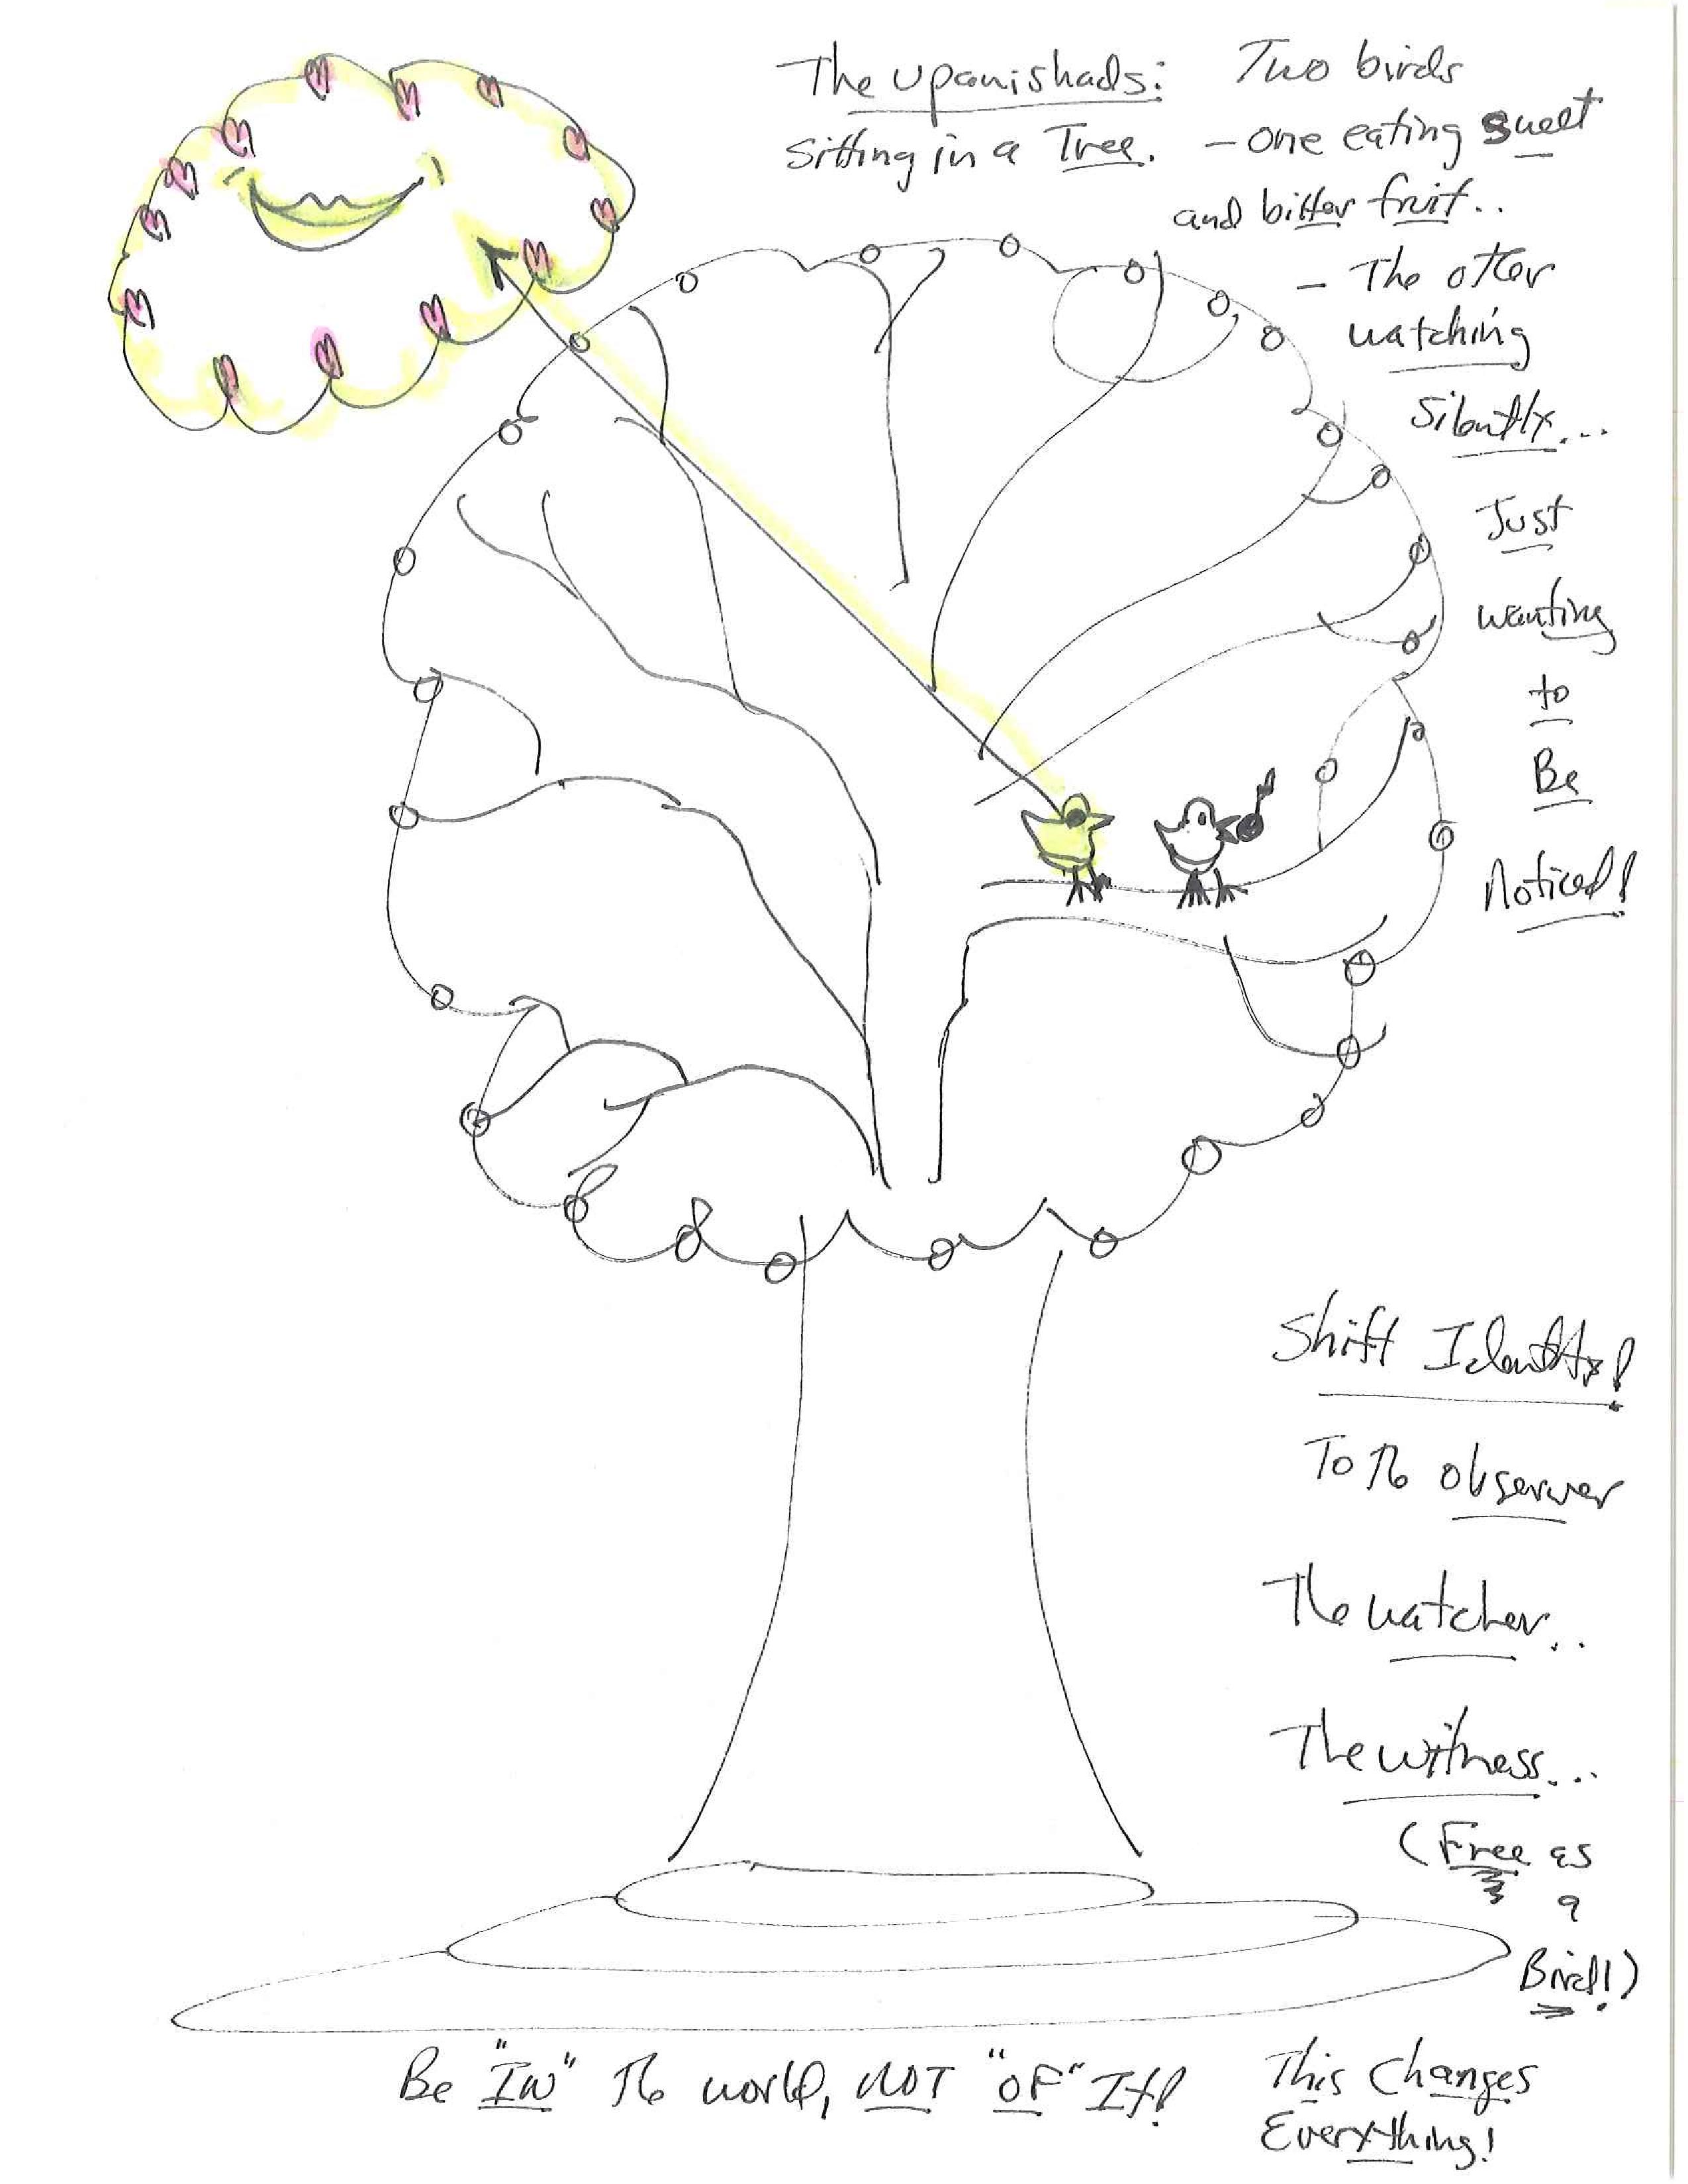 The Upanishads: Two birds
Sitting in a Tree. - one eating sweet
and bitter fruit..
- The other
watching
Silently...
Just
wanting
to
Be
Noticed!
Shift Identity!
To The observer
The watcher..
The witness...
(Free as
a
Bird!)
Be "IN" The world, NOT "OF" It!
This Changes
Everything!